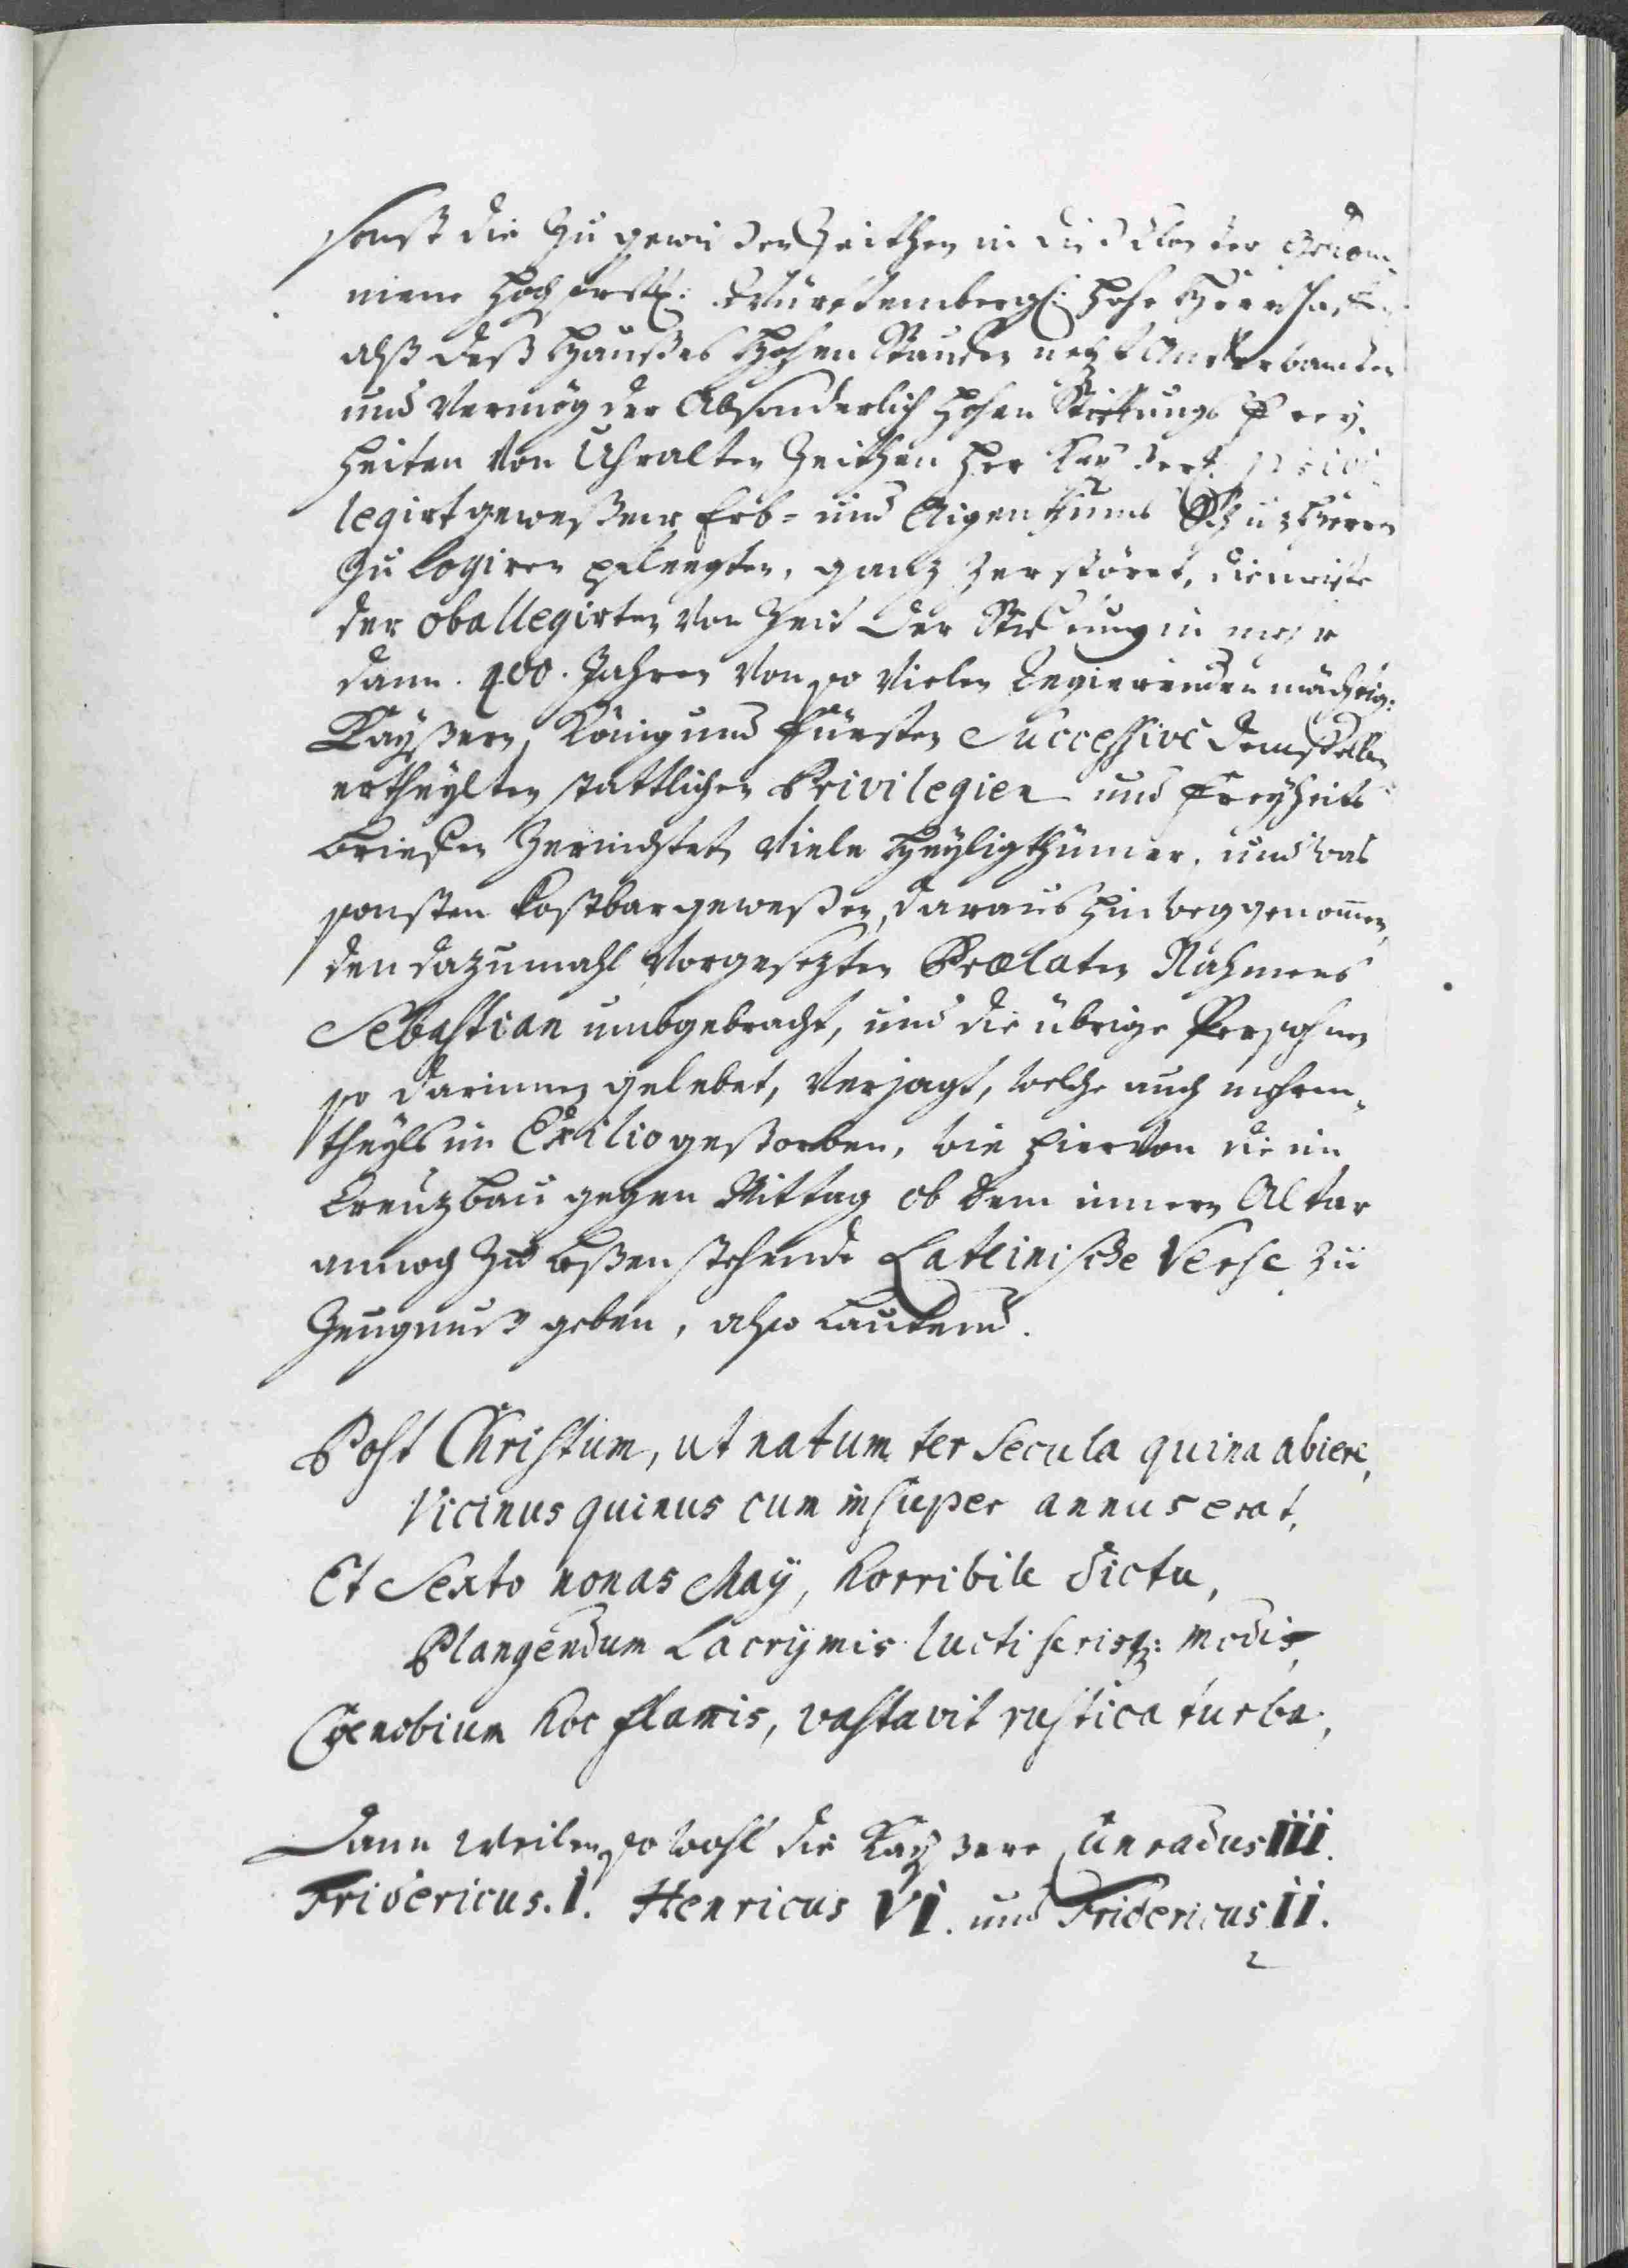 sonst die zu gewißen Zeithen in diß Closter gekom¬
mene Hochfürstl: Würtemberg: hohe Herrschafften
alß deß Haußes Hohen Stauffen Anverwandten
und Vermög der Absonderlich hohen Stifftungs Frey¬
heiten von Uhralten Zeithen her Kayserl: privi¬
legirt geweßener Erb- und Aigenthums Schuz Herrn
zu logiren pfleegten, ganz zerstöret, die meiste
der oballegirten von Zeit der Stifftung in mehr
dann 400. Jahren von so vielen Regierenden mächtig:
Kayßern, König und Fürsten Successivè demselben
ertheylten stattlichen Privilegien und Freyheits
Brieffen zernichtet, viele Heyligthümer, und was
sonsten kostbar geweßen, daraus hinweggenom̄en,
den dazumahl Vorgesezten Prælaten Nahmens
Sebastian umbgebracht, und die übrige Persohnen
so darinnen gelebet, verjagt, welche auch mehren¬
theyls in Exilio gestorben, wie hiervon die im
Creuzbau gegen Mittag ob dem innern Altar
annoch zu leßen stehende Lateinische Verse zu
Zeugnuß geben, also lautend.
Post Christum, ut natum ter Secula quina abiere,
Vicinus quinus cum insuper annus erat,
Et Sexto nonas Maÿ, horribile dictu,
Plangendum Lacrÿmis luctiferisq: modis,
Cœnobium hoc flam̄is, vastavit rustica turba.,
Dann weilen so wohl die Kayßere Cunradus III.
Fridericus. I. Henricus VI. und Fridericus II.
2